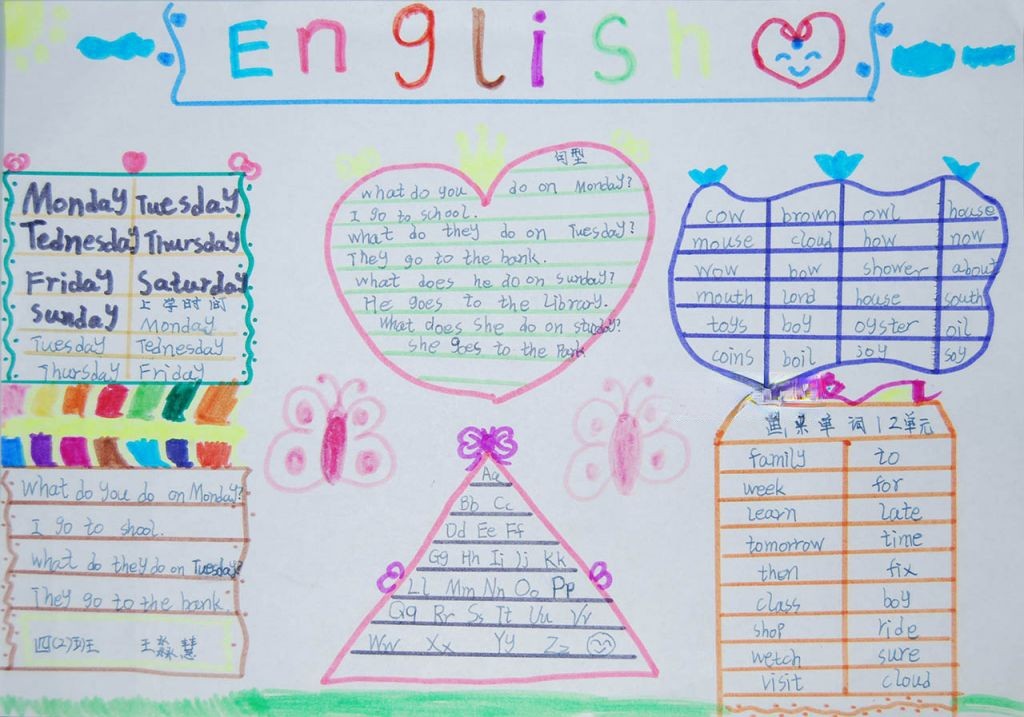 English
Monday Tuesday
Tednesday Thursday
Friday Saturday
Sunday 上学时间
Monday
Tuesday Tednesday
Thursday Friday
What do you do on Monday?
I go to shool.
What do they do on Tuesday?
They go to the bank.
四(2)班 王淼慧
句型
what do you do on Monday?
I go to school.
what do they do on Tuesday?
They go to the bank.
what does he do on sunday?
He goes to the Library.
What does She do on
She goes to the Park
Aa
Bb Cc
Dd Ee Ff
Gg Hh Ii Jj Kk
Ll Mm Nn Oo Pp
Qq Rr Ss Tt Uu Vv
Ww Xx Yy Zz
cow brown owl house
mouse cloud how now
wow bow shower about
mouth lord house south
toys boy oyster oil
coins boil joy soy
单词12单元
family to
week for
learn late
tomorrow time
then fix
class boy
shop ride
wetch sure
visit cloud